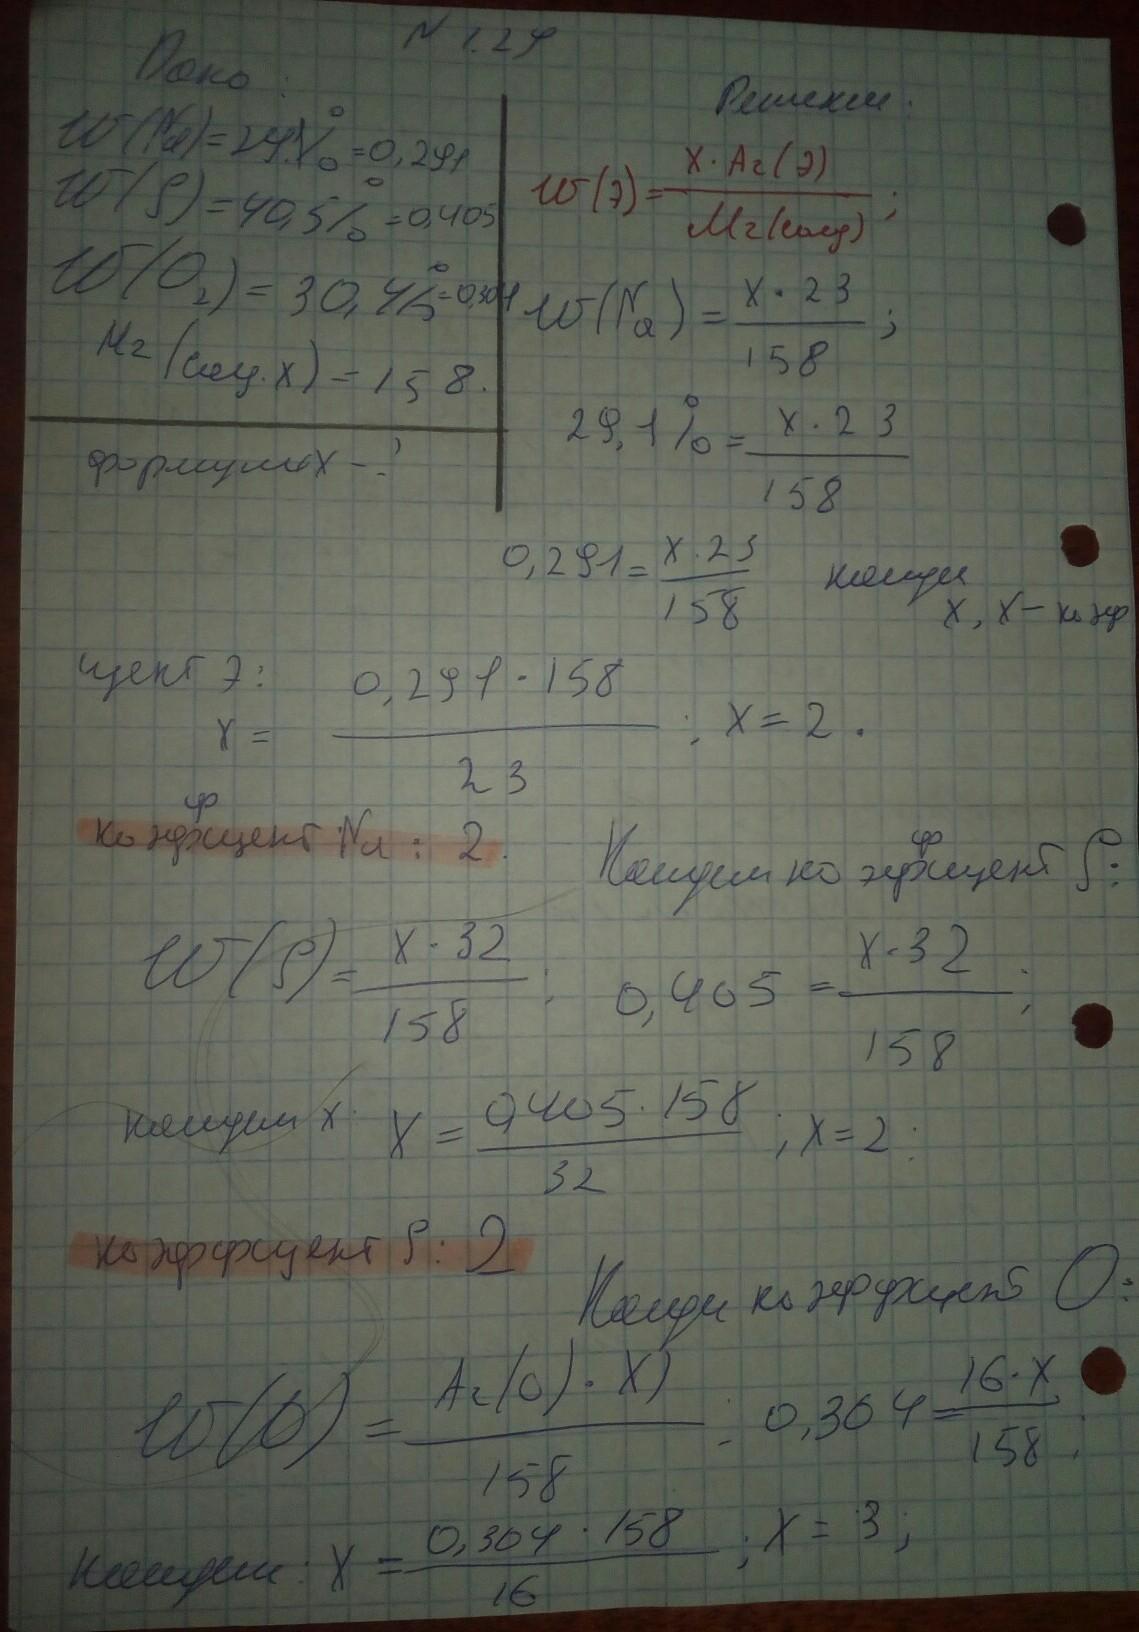 N 1.29
Дано:
W(Na)=29,1%=0,291
W(S)=40,5%=0,405
W(O₂)=30,4%=0,304
Mr(соед.X)=158.
формула X-?
Решение:
W(Э)=X·Ar(Э)/Mr(соед);
W(Na)=X·23/158;
29,1%=X·23/158
0,291=X·23/158 найди
X, X-коэф
цент Э:
X=0,291·158/23; X=2.
коэфицент Na: 2.
Найдем коэфицент S:
W(S)=X·32/158; 0,405=X·32/158;
найдем X X=0,405·158/32; X=2:
коэффицент S: 2
Найди коэффицент O:
W(O)=Ar(O)·X)/158; 0,304=16·X/158;
Найдем: X=0,304·158/16; X=3;